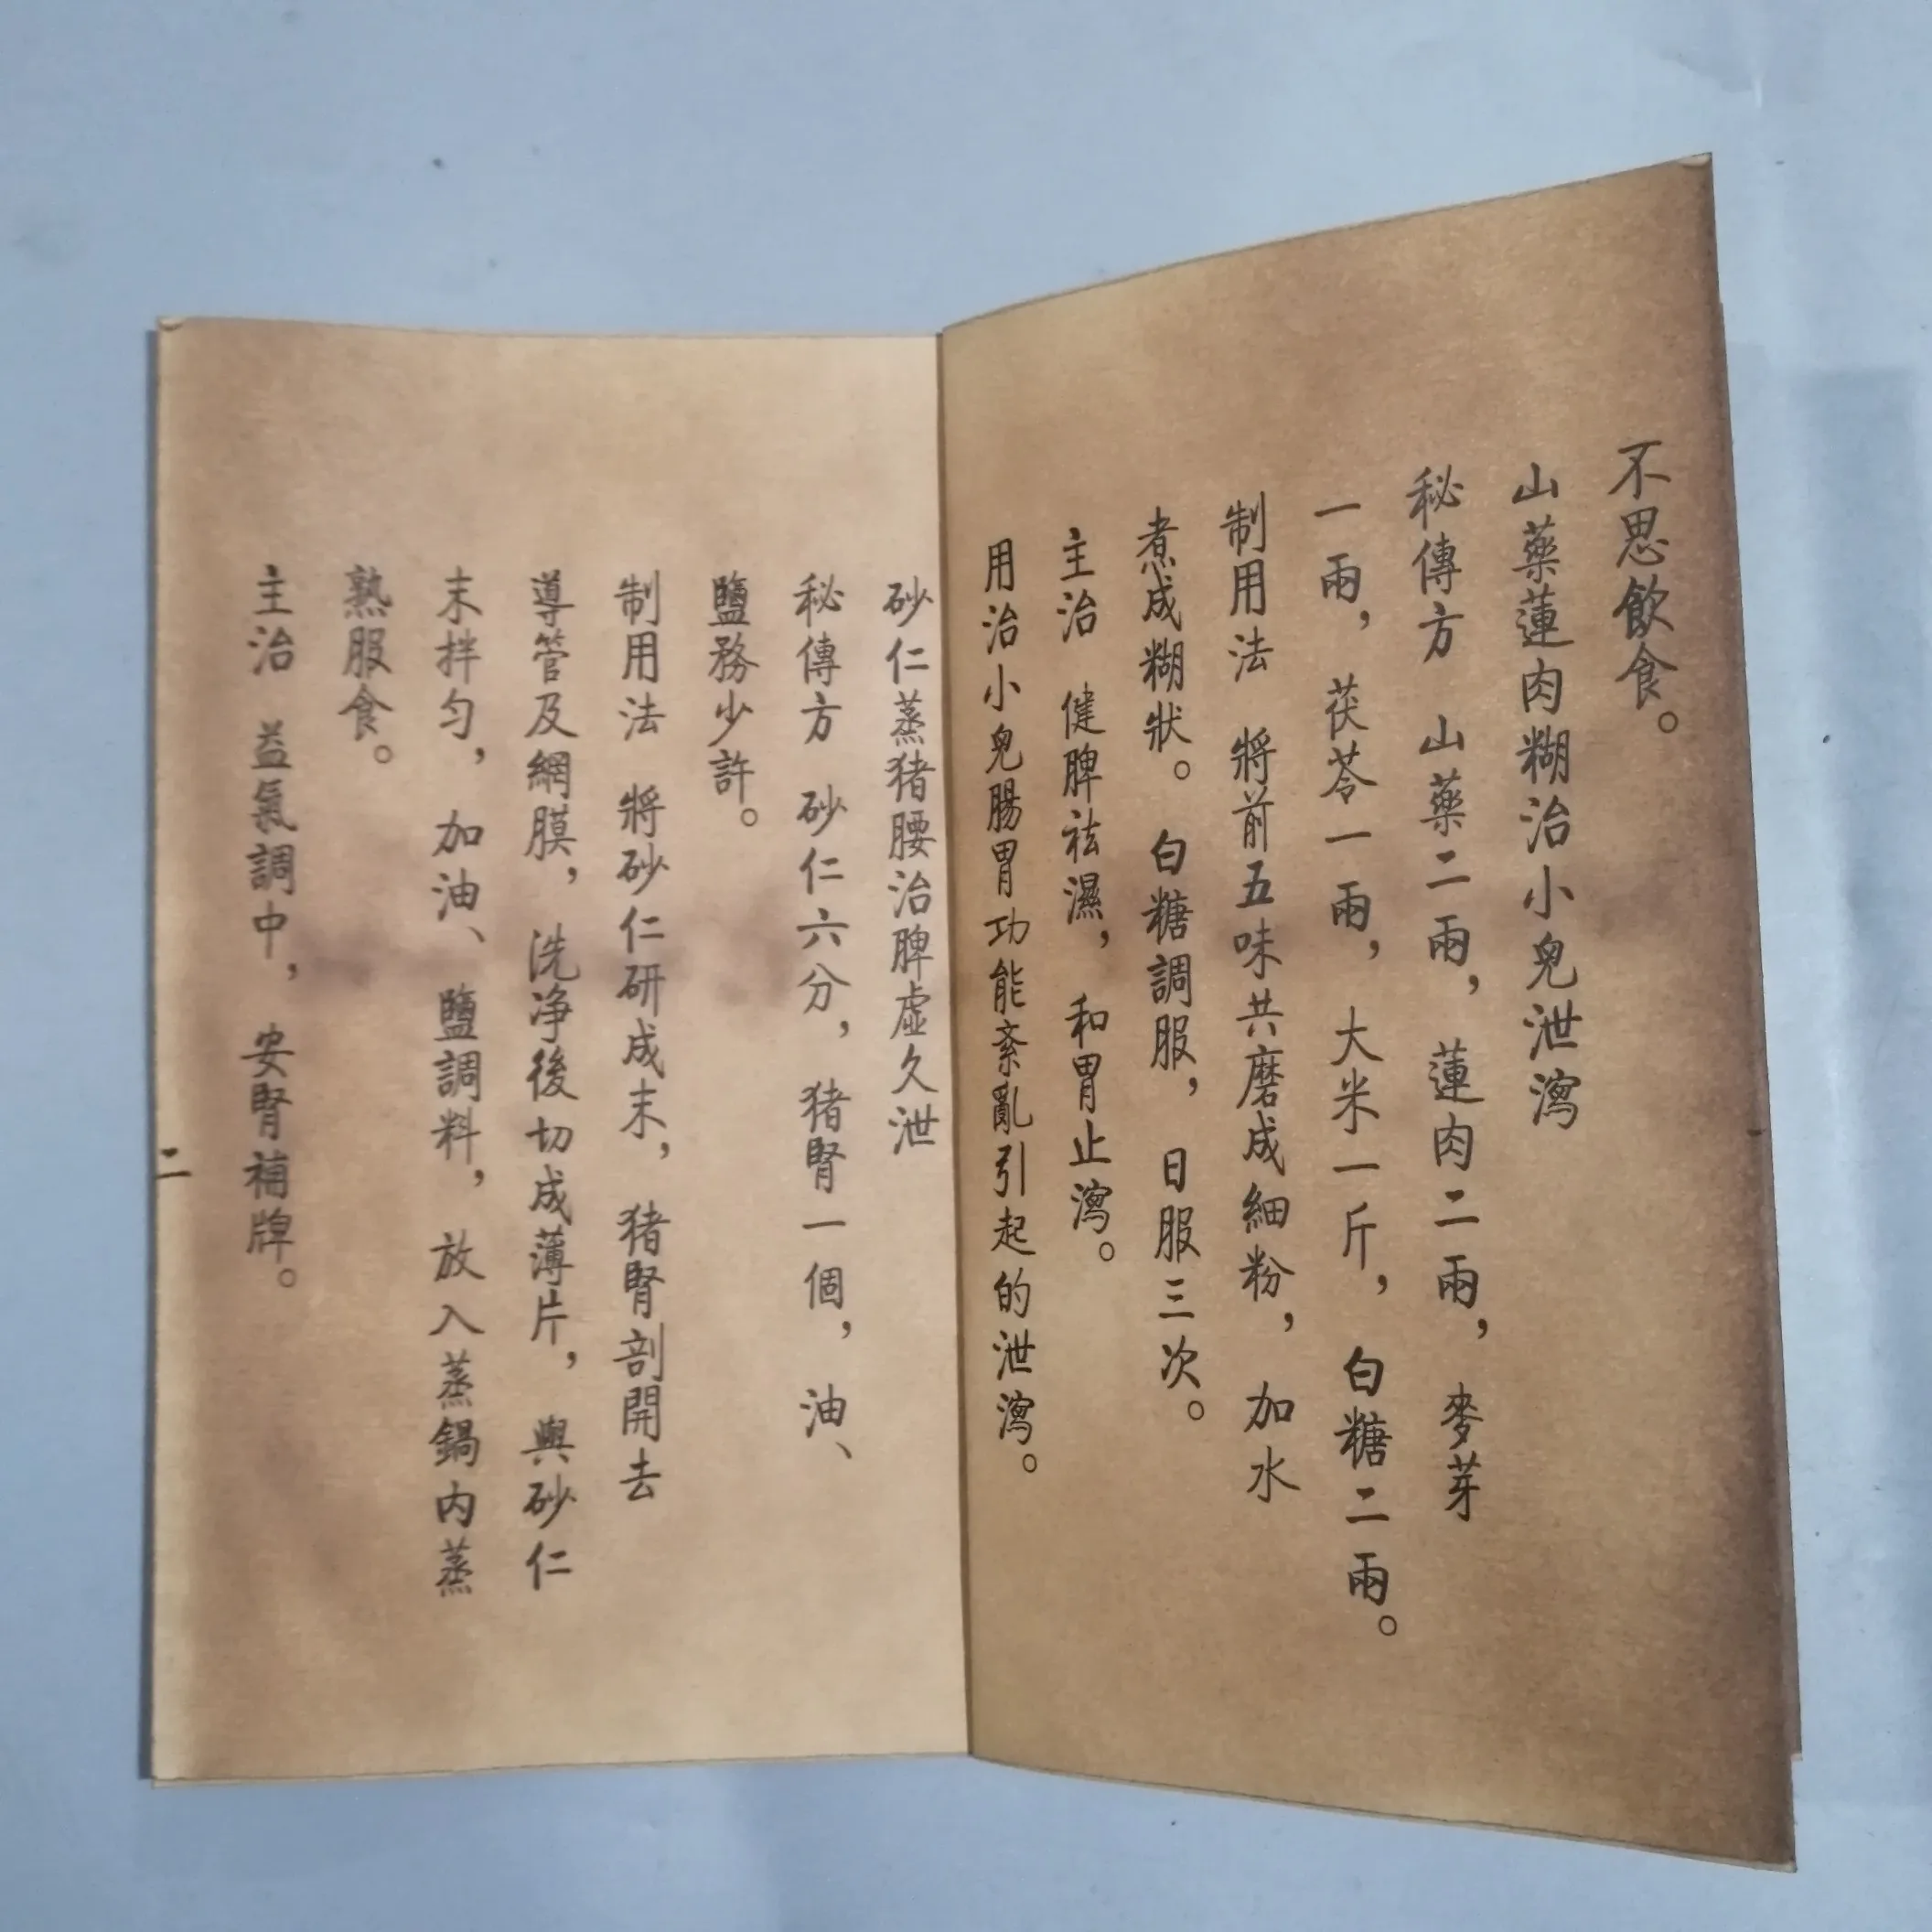 不思飲食。
山藥蓮肉糊治小兒泄瀉
秘傳方 山藥二兩，蓮肉二兩，麥芽
一兩，茯苓一兩，大米一斤，白糖二兩。
制用法 將前五味共磨成細粉，加水
煮成糊狀。白糖調服，日服三次。
主治 健脾祛濕，和胃止瀉。
用治小兒腸胃功能紊亂引起的泄瀉。
砂仁蒸猪腰治脾虛久泄
秘傳方 砂仁六分，猪腎一個，油、
鹽務少許。
制用法 將砂仁研成末，猪腎剖開去
導管及網膜，洗净後切成薄片，與砂仁
末拌勻，加油、鹽調料，放入蒸鍋內蒸
熟服食。
主治 益氣調中，安腎補牌。
二